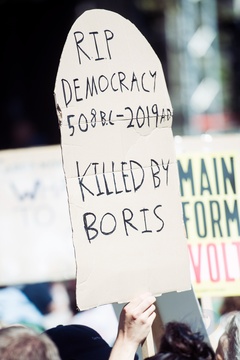 RIP
DEMOCRACY
508BC-2019AD
KILLED BY
BORIS
MAIN
FORM
VOLT